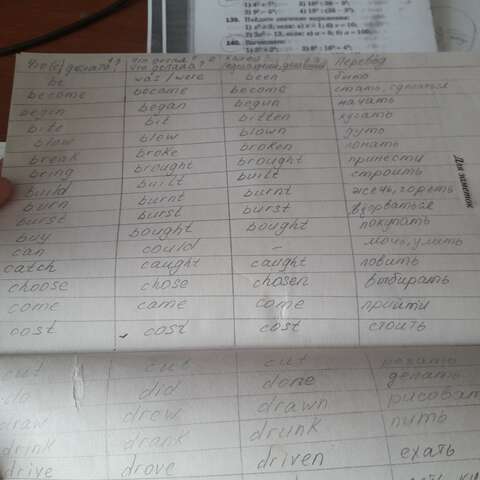 139. Найдите значение выражения:
140.
Что (с) делать? что делал? что делала? какой? Перевод
be was/were been было
become became become стать, сделаться
begin began begun начать
bite bit bitten кусать
blow blow blown дуть
break broke broken ломать
bring brought brought принести
build built built строить
burn burnt burnt жечь, гореть
burst burst burst взорваться
buy bought bought покупать
can could – мочь, уметь
catch caught caught ловить
choose chose chosen выбирать
come came come прийти
cost cost cost стоить
Для заметок
cut cut cut резать
do did done делать
draw drew drawn рисоват
drink drank drunk пить
drive drove driven ехать